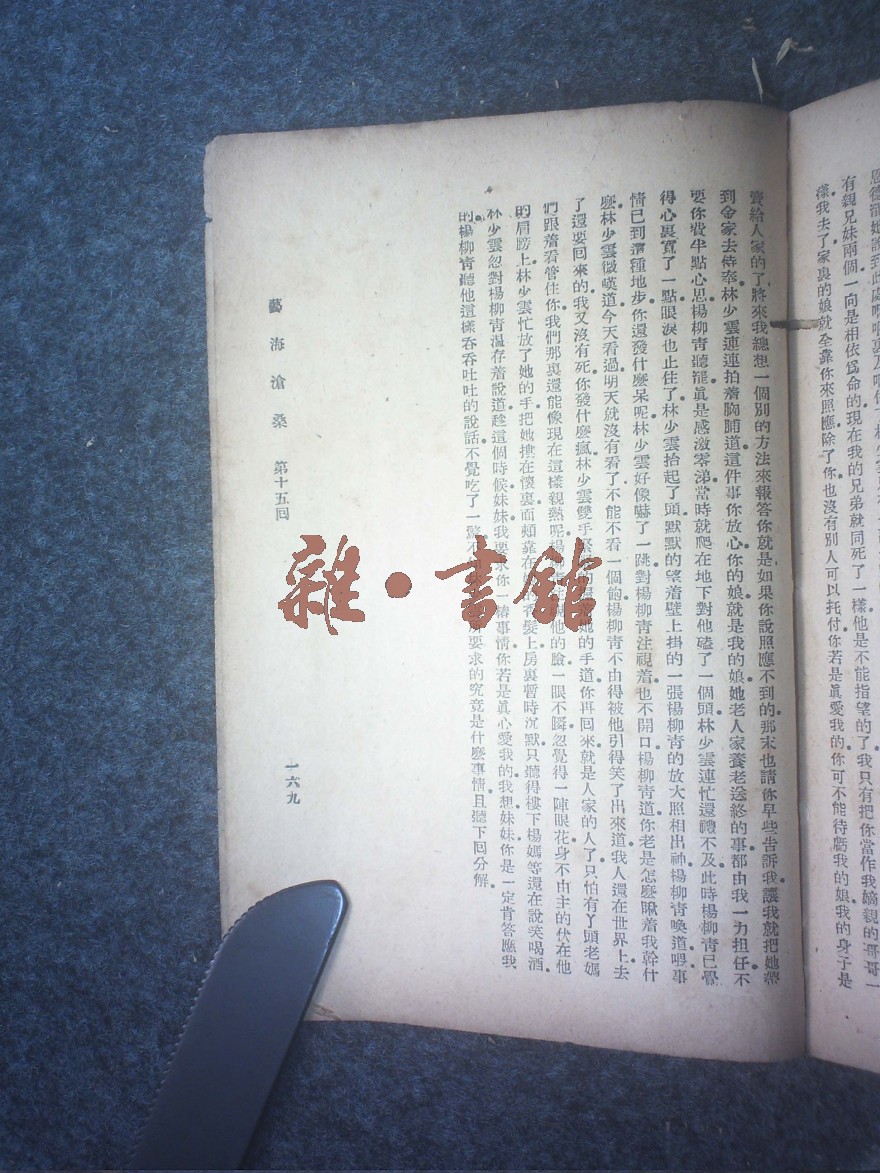 恩德罷她說到此處
有親兄妹兩個一向是相依爲命的現在我的兄弟就同死了一樣他是不能指望的了我只有把你當作我嫡親的哥哥一
樣我去了家裏的娘就全靠你來照應除了你也沒有別人可以托付你若是眞愛我的你可不能待虧我的娘我的身子是
賣給人家的了將來我總想一個別的方法來報答你就是如果你說照應不到的那末也請你早些告訴我讓我就把她帶
到金家去侍奉林少雲連連拍着胸脯道這件事你放心你的娘就是我的娘她老人家養老送終的事都由我一力担任不
要你費半點心思楊柳青聽罷眞是感激零涕當時就爬在地下對他磕了一個頭林少雲連忙還禮不及此時楊柳青已覺
得心裏寬了一點眼淚也止住了林少雲抬起了頭默默的望着壁上掛的一張楊柳青的放大照相出神楊柳青喚道喂事
情已到這種地步你還發什麼呆呢林少雲好像嚇了一跳對楊柳青注視着也不開口楊柳青道你老是怎麼瞅着我幹什
麼林少雲微嘆道今天看過明天就沒有看了不能不看一個飽楊柳青不由得被他引得笑了出來道我人還在世界上去
了還要回來的我又沒有死你發什麼瘋林少雲雙手緊她的手道你再回來就是人家的人了只怕有丫頭老媽
們跟着看管住你我們那裏還能像現在這樣親熱呢楊他的臉一眼不瞬忽覺得一陣眼花身不由主的伏在他
的肩膀上林少雲忙放了她的手把她摟在懷裏面頰靠在髮上房裏暫時沉默只聽得樓下楊媽等還在說笑喝酒
林少雲忽對楊柳青溫存着說道趁這個時候妹妹我要求你一樁事情你若是眞心愛我的我想妹妹你是一定肯答應我
的楊柳青聽他這樣呑呑吐吐的說話不覺吃了一驚不所要求的究竟是什麼事情且聽下回分解
藝海滄桑 第十五回
一六九
雜·書館